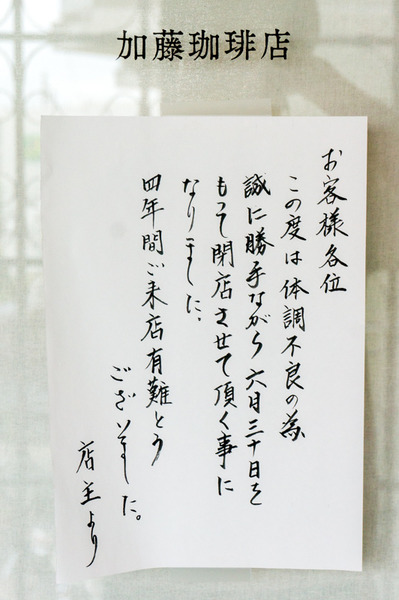 加藤珈琲店
お客様各位
この度は体調不良の為
誠に勝手ながら六月三十日を
もって閉店させて頂く事に
なりました。
四年間ご来店有難とう
ございました。
店主より